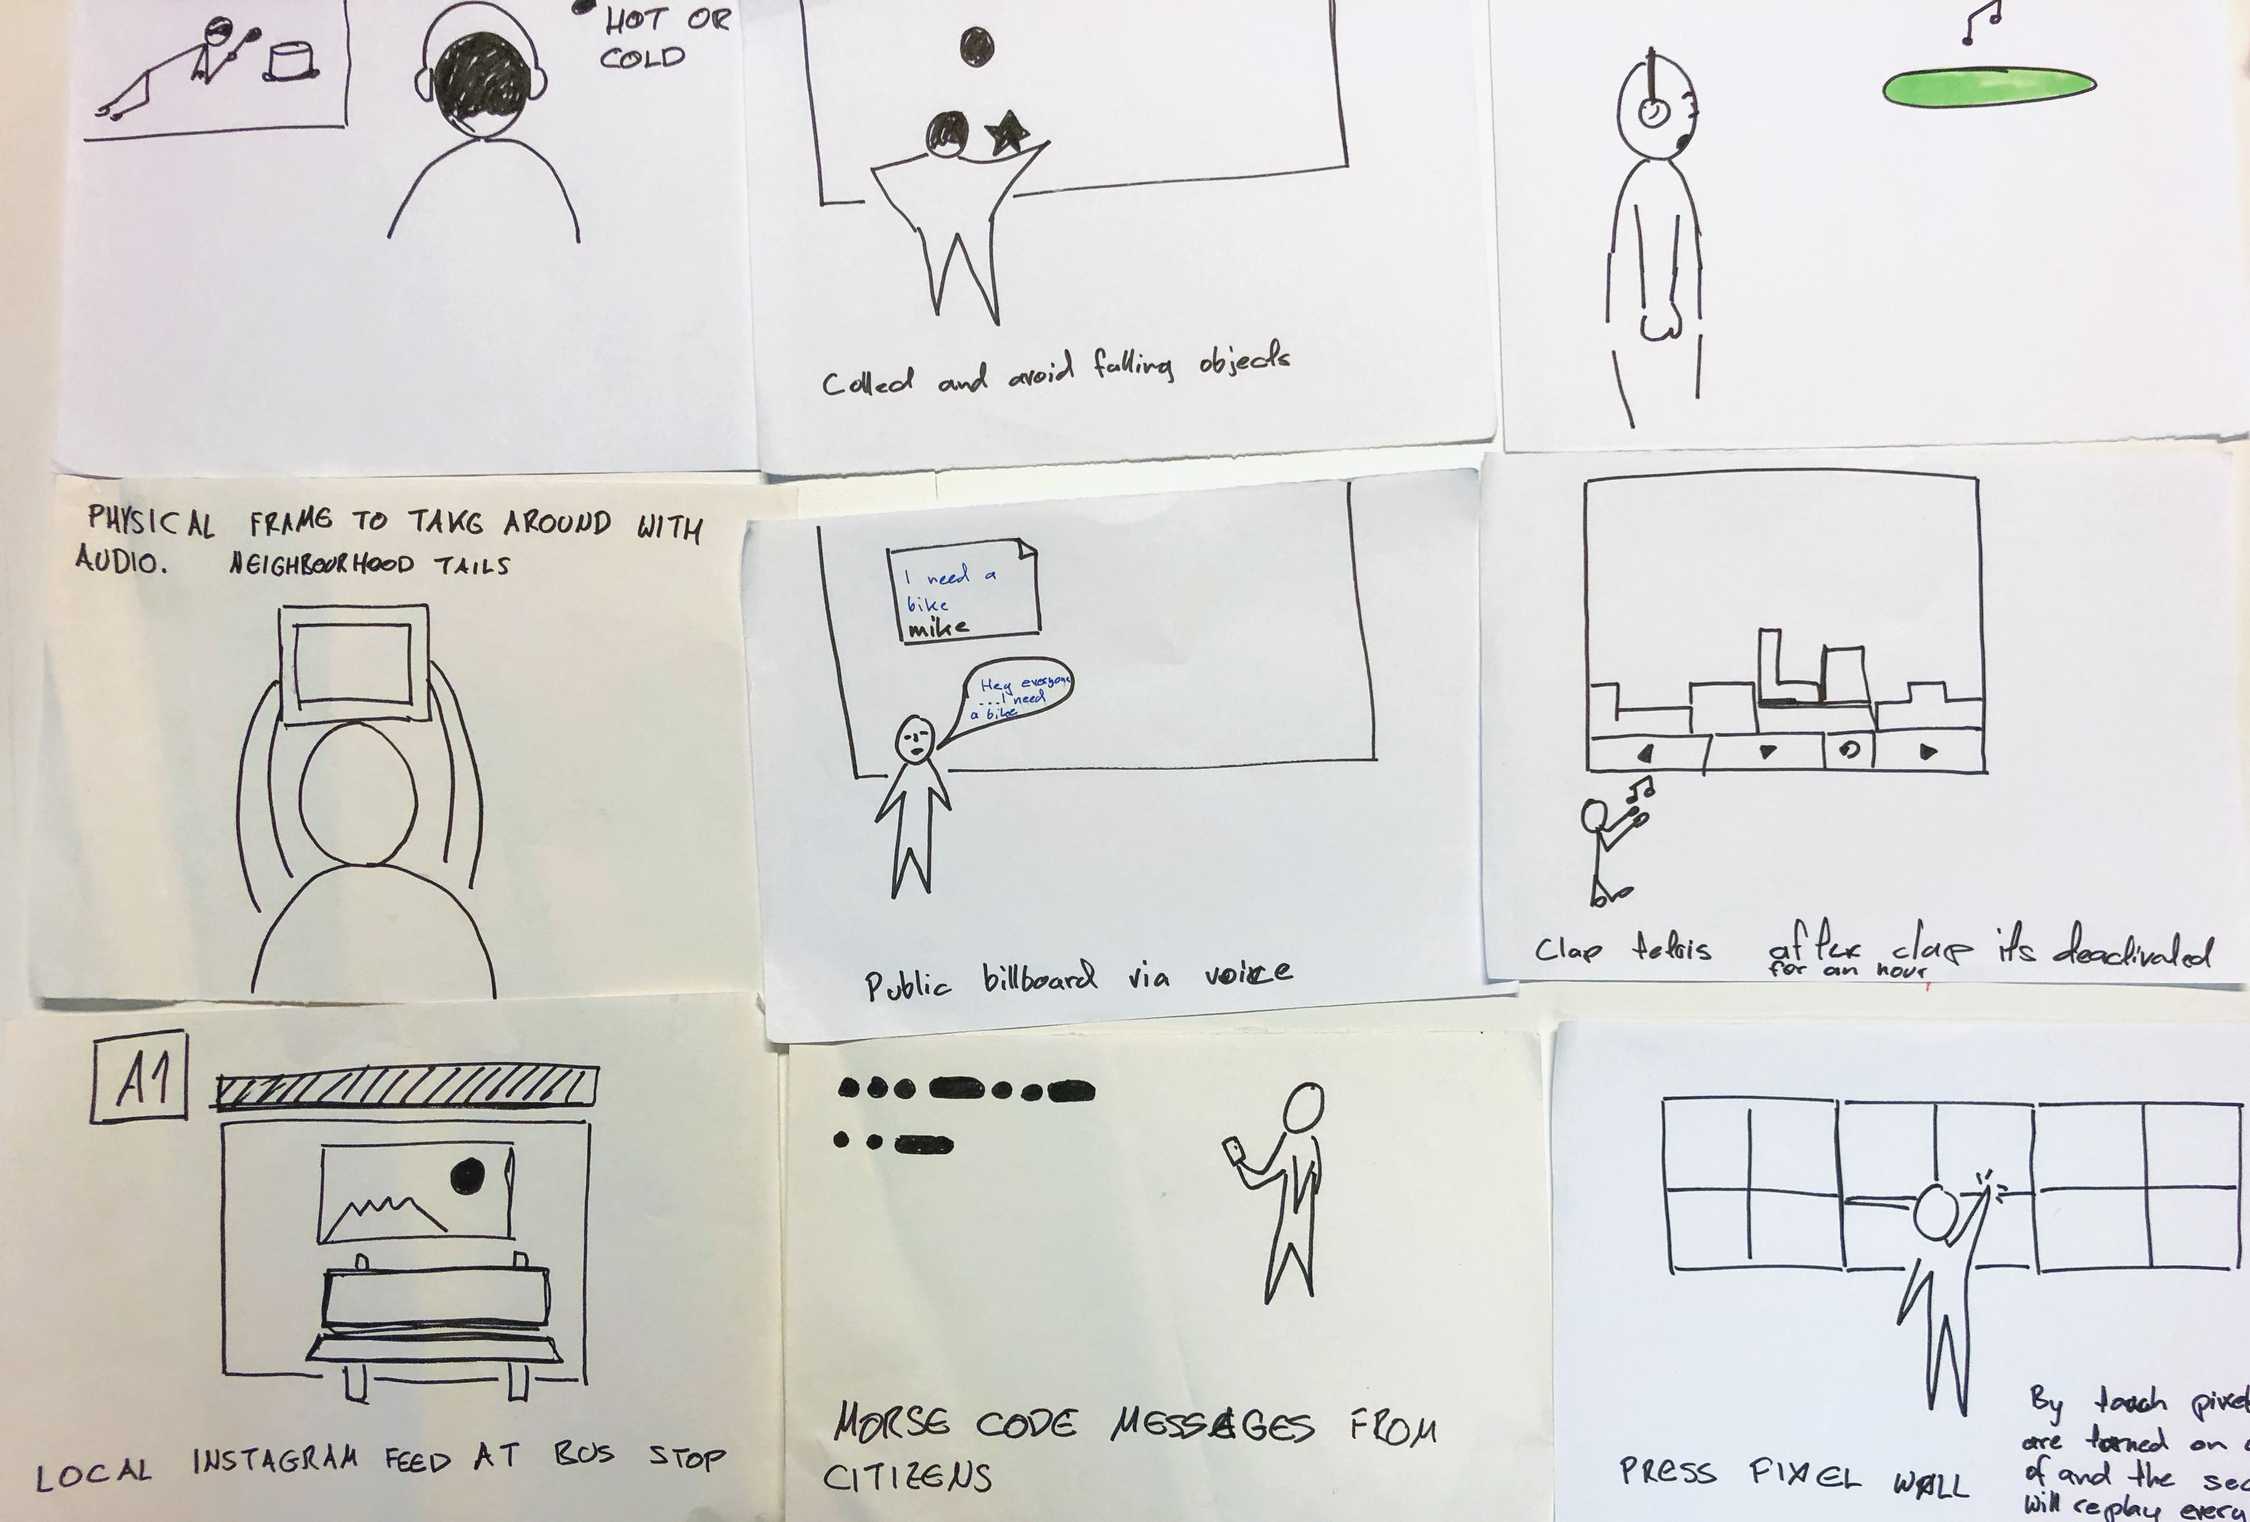 HOT OR
COLD
Collect and avoid falling objects
PHYSICAL FRAME TO TAKE AROUND WITH
AUDIO. NEIGHBOURHOOD TAILS
I need a
bike
mike
Hey everyone
...I need
a bike
Public billboard via voice
Clap tetris after clap its deactivated
for an hour
A1
LOCAL INSTAGRAM FEED AT BUS STOP
MORSE CODE MESSAGES FROM
CITIZENS
PRESS PIXEL WALL
By touch pixel
are turned on
of and the sec
will replay every